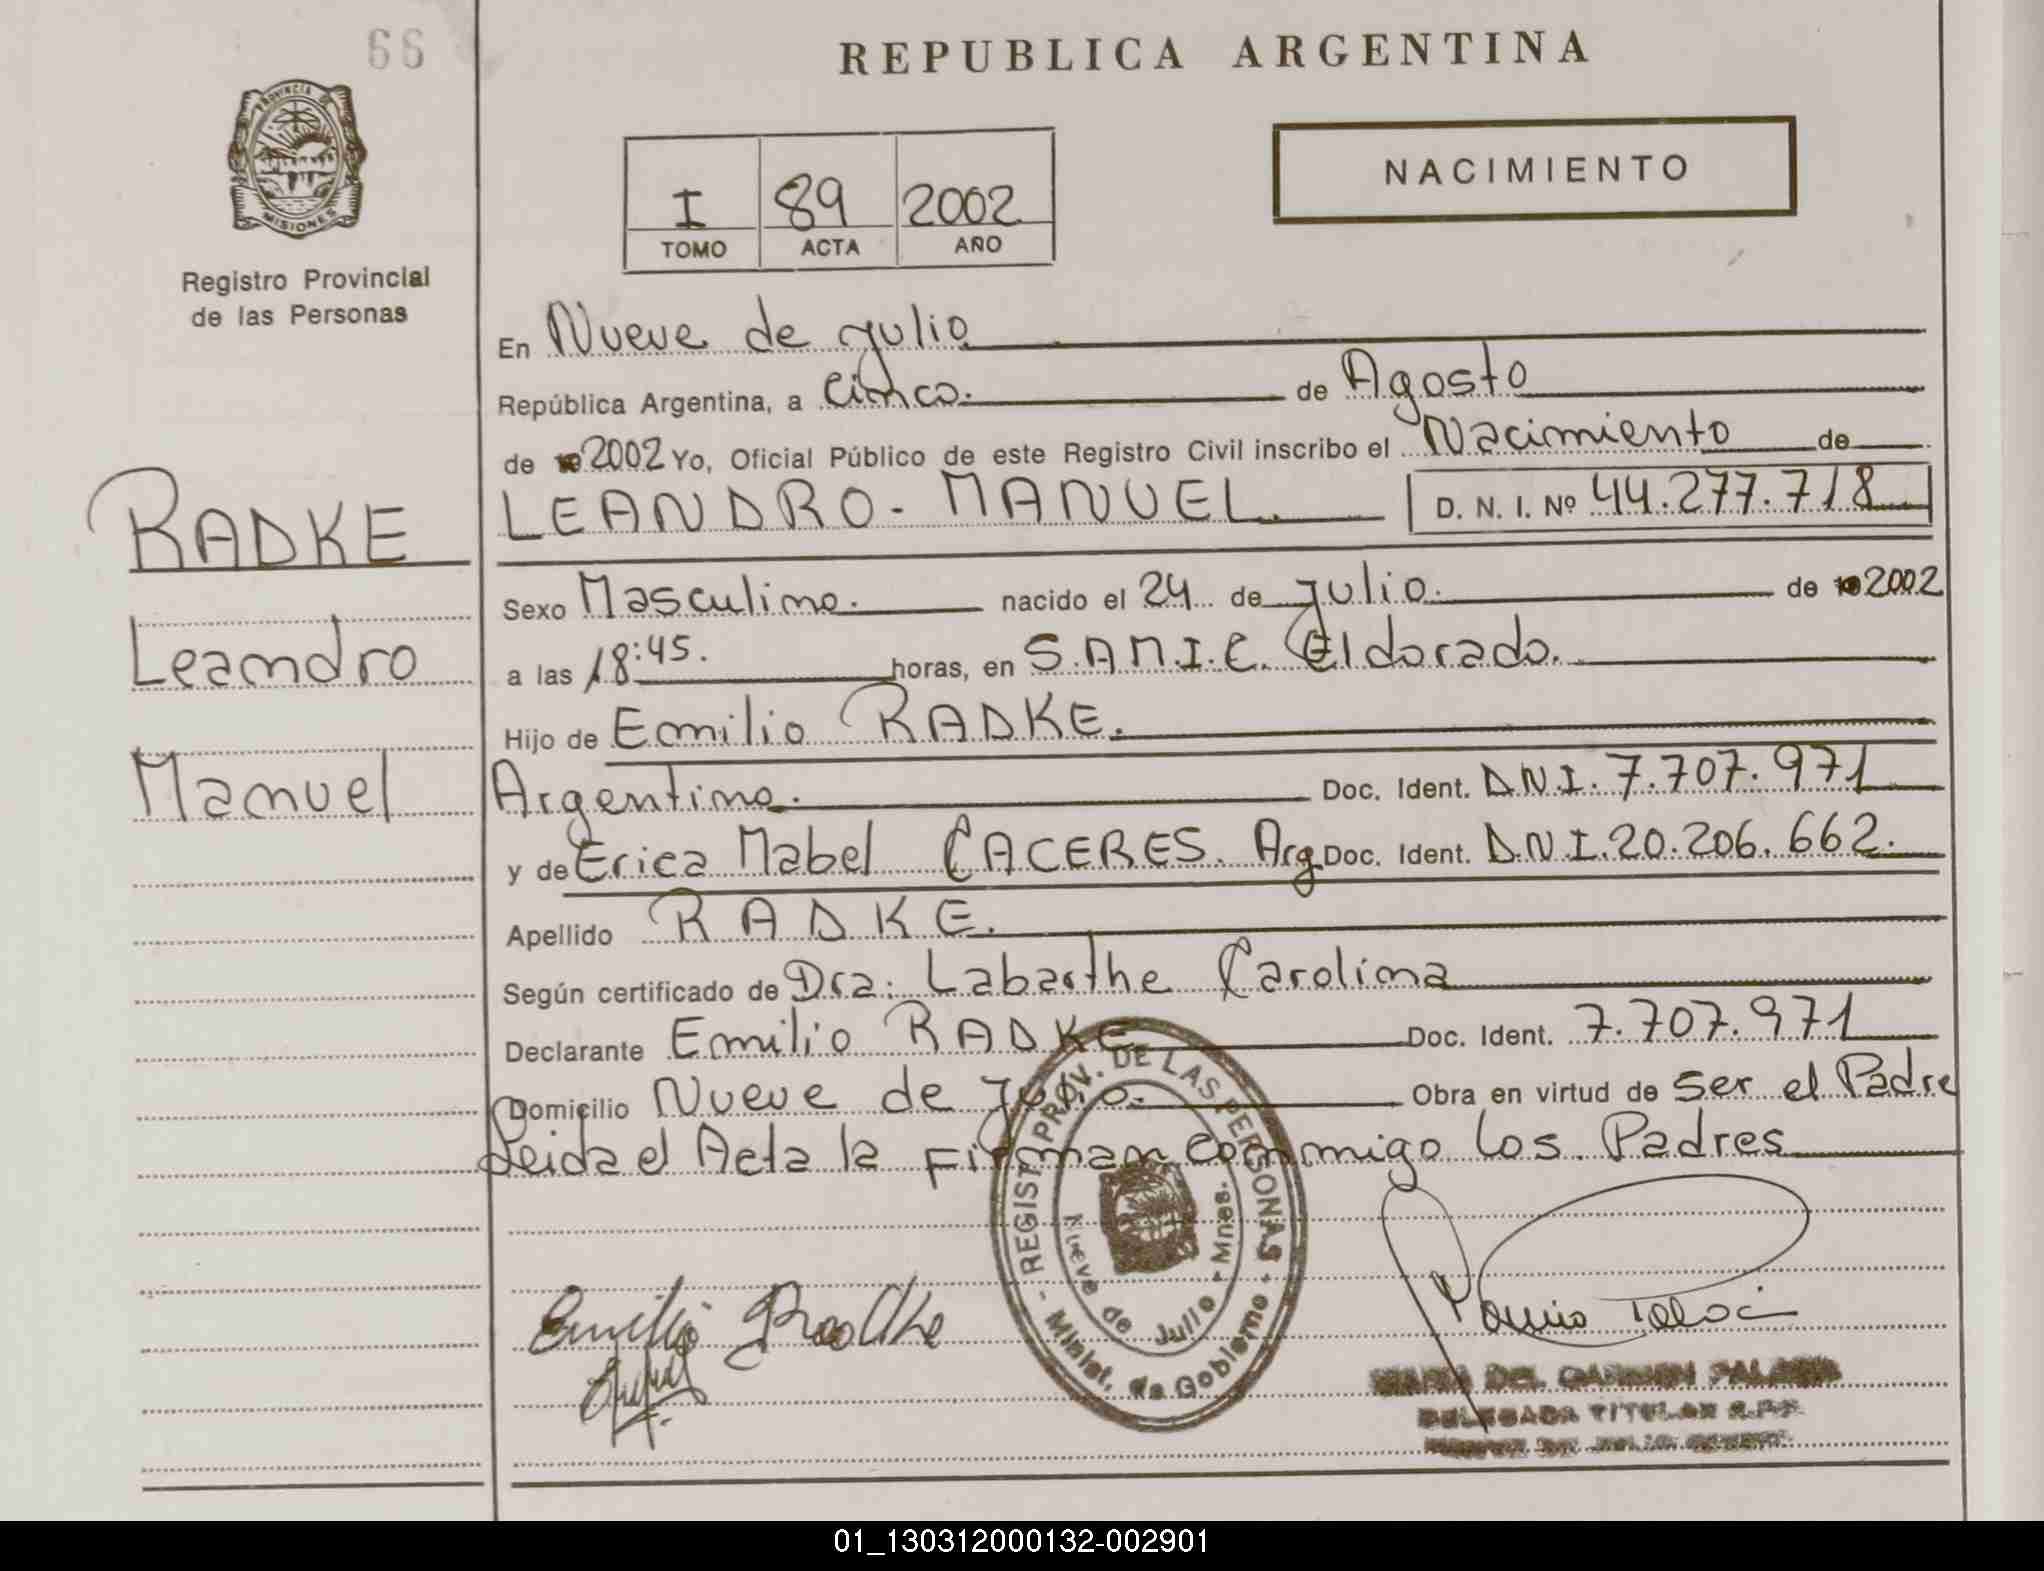 66
REPUBLICA ARGENTINA
PROVINCIA DE
MISIONES
Registro Provincial
de las Personas
I 89 2002
TOMO ACTA AÑO
NACIMIENTO
En Nueve de julio
República Argentina, a Cinco. de Agosto
de 2002 Yo, Oficial Público de este Registro Civil inscribo el Nacimiento de
RADKE
LEANDRO - MANUEL. D. N. I. Nº 44.277.718
Sexo Masculino. nacido el 24 de julio. de 2002
Leandro
a las 18:45. horas, en S.A.M.I.C. Eldorado.
Hijo de Emilio RADKE.
Manuel
Argentino. Doc. Ident. D.N.I. 7.707.971
y de Erica Mabel CACERES. Arg Doc. Ident. D.N.I. 20.206.662.
Apellido RADKE.
Según certificado de Dra: Labarthe Carolina
Declarante Emilio RADKE Doc. Ident. 7.707.971
Domicilio Nueve de Julio. Obra en virtud de ser el Padre
Leida el Acta la Firman conmigo los Padres
REGIST. PROV. DE LAS PERSONAS
Nueve de Julio - Mnes.
- Minist. de Gobierno -
Emilio Radke
MARIA DEL CARMEN
DELEGADA TITULAR R.P.P.
01_130312000132-002901